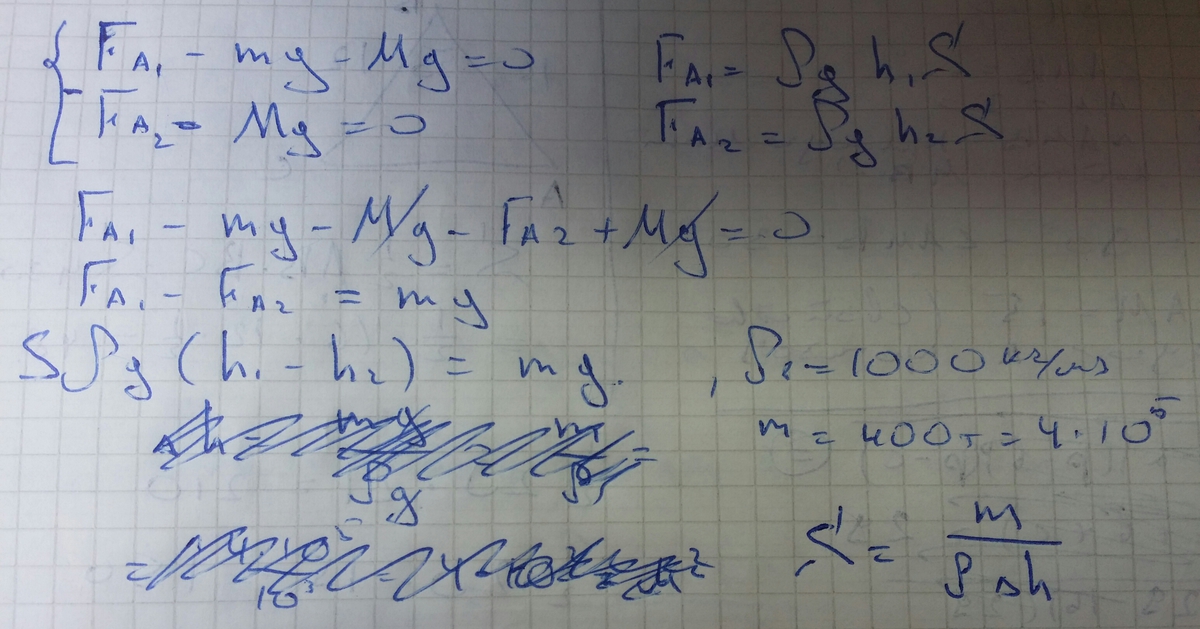 F_A₁ - mg - Mg = 0
F_A₂ - Mg = 0
F_A₁ = ρg h₁ S
F_A₂ = ρg h₂ S
F_A₁ - mg - Mg - F_A₂ + Mg = 0
F_A₁ - F_A₂ = mg
Sρg (h₁ - h₂) = mg.
, ρ₂ = 1000 кг/м³
m = 400т = 4 · 10⁵
S = m / ρ Δh